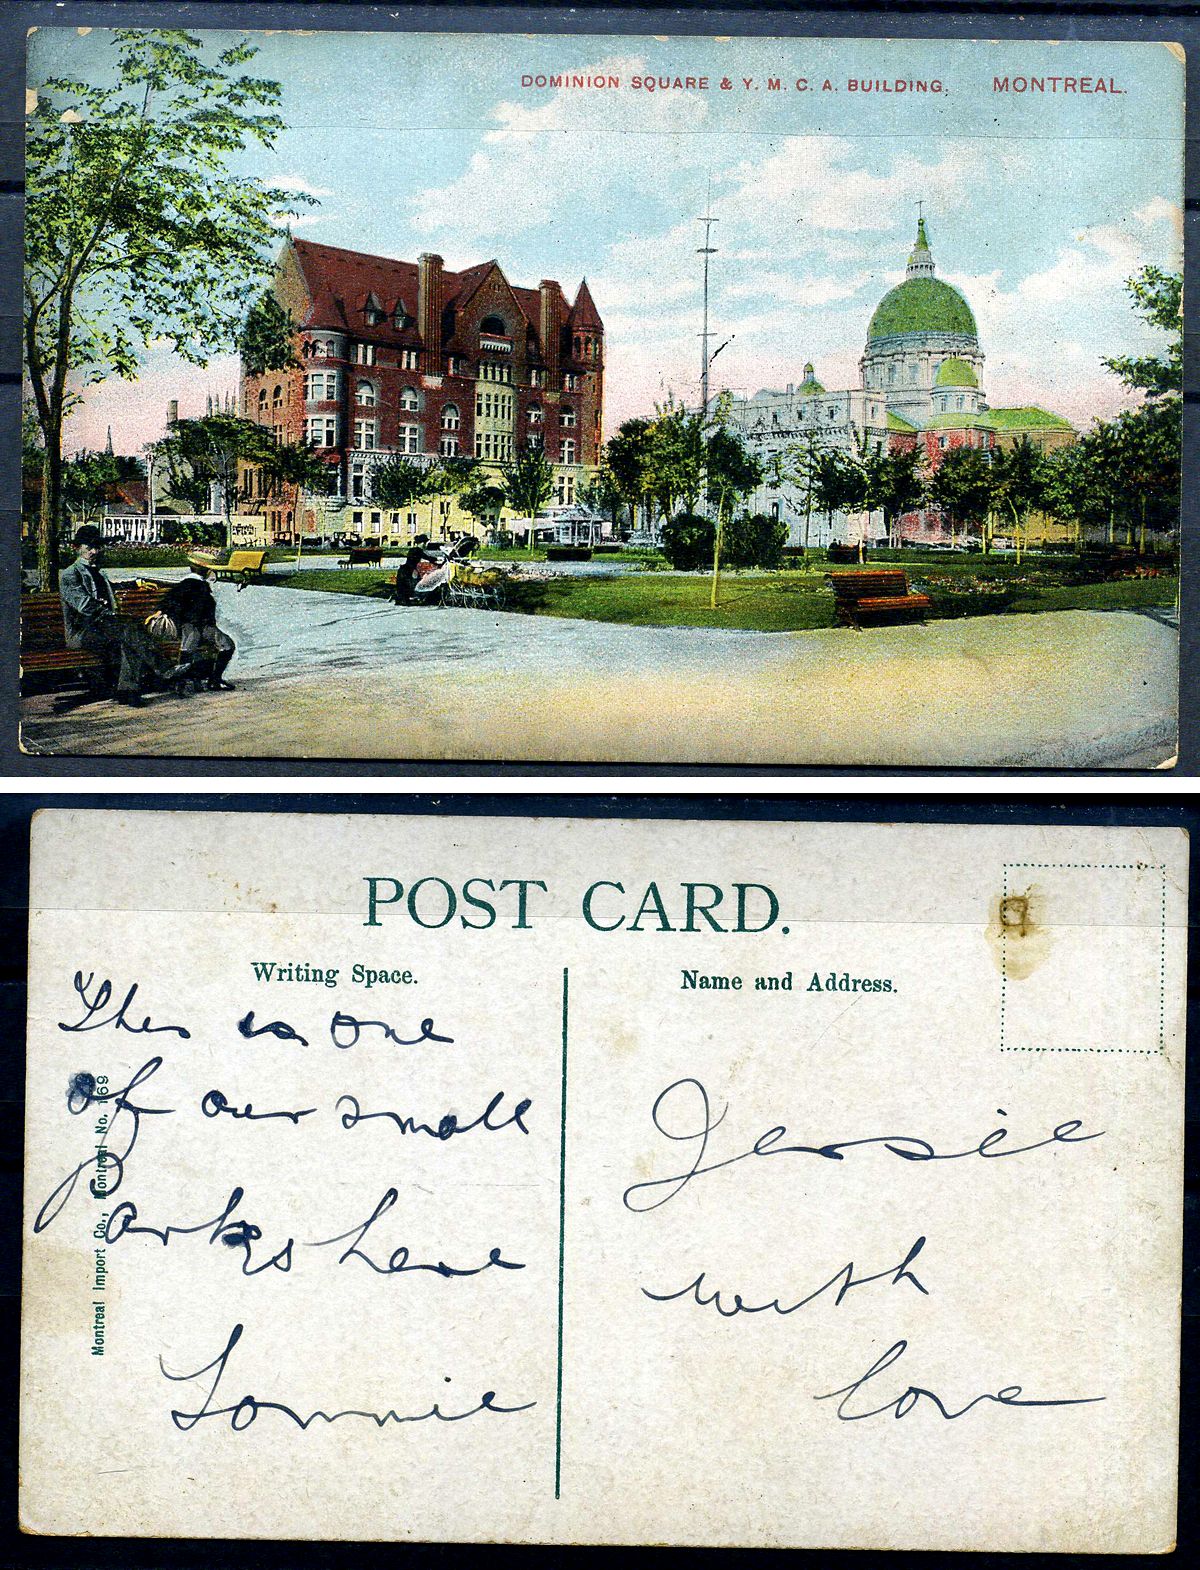 DOMINION SQUARE & Y. M. C. A. BUILDING. MONTREAL.
POST CARD.
Writing Space.
Name and Address.
This is one
of our small
Parks here
Lonnie
Jessie
with
love
Montreal Import Co., Montreal No.